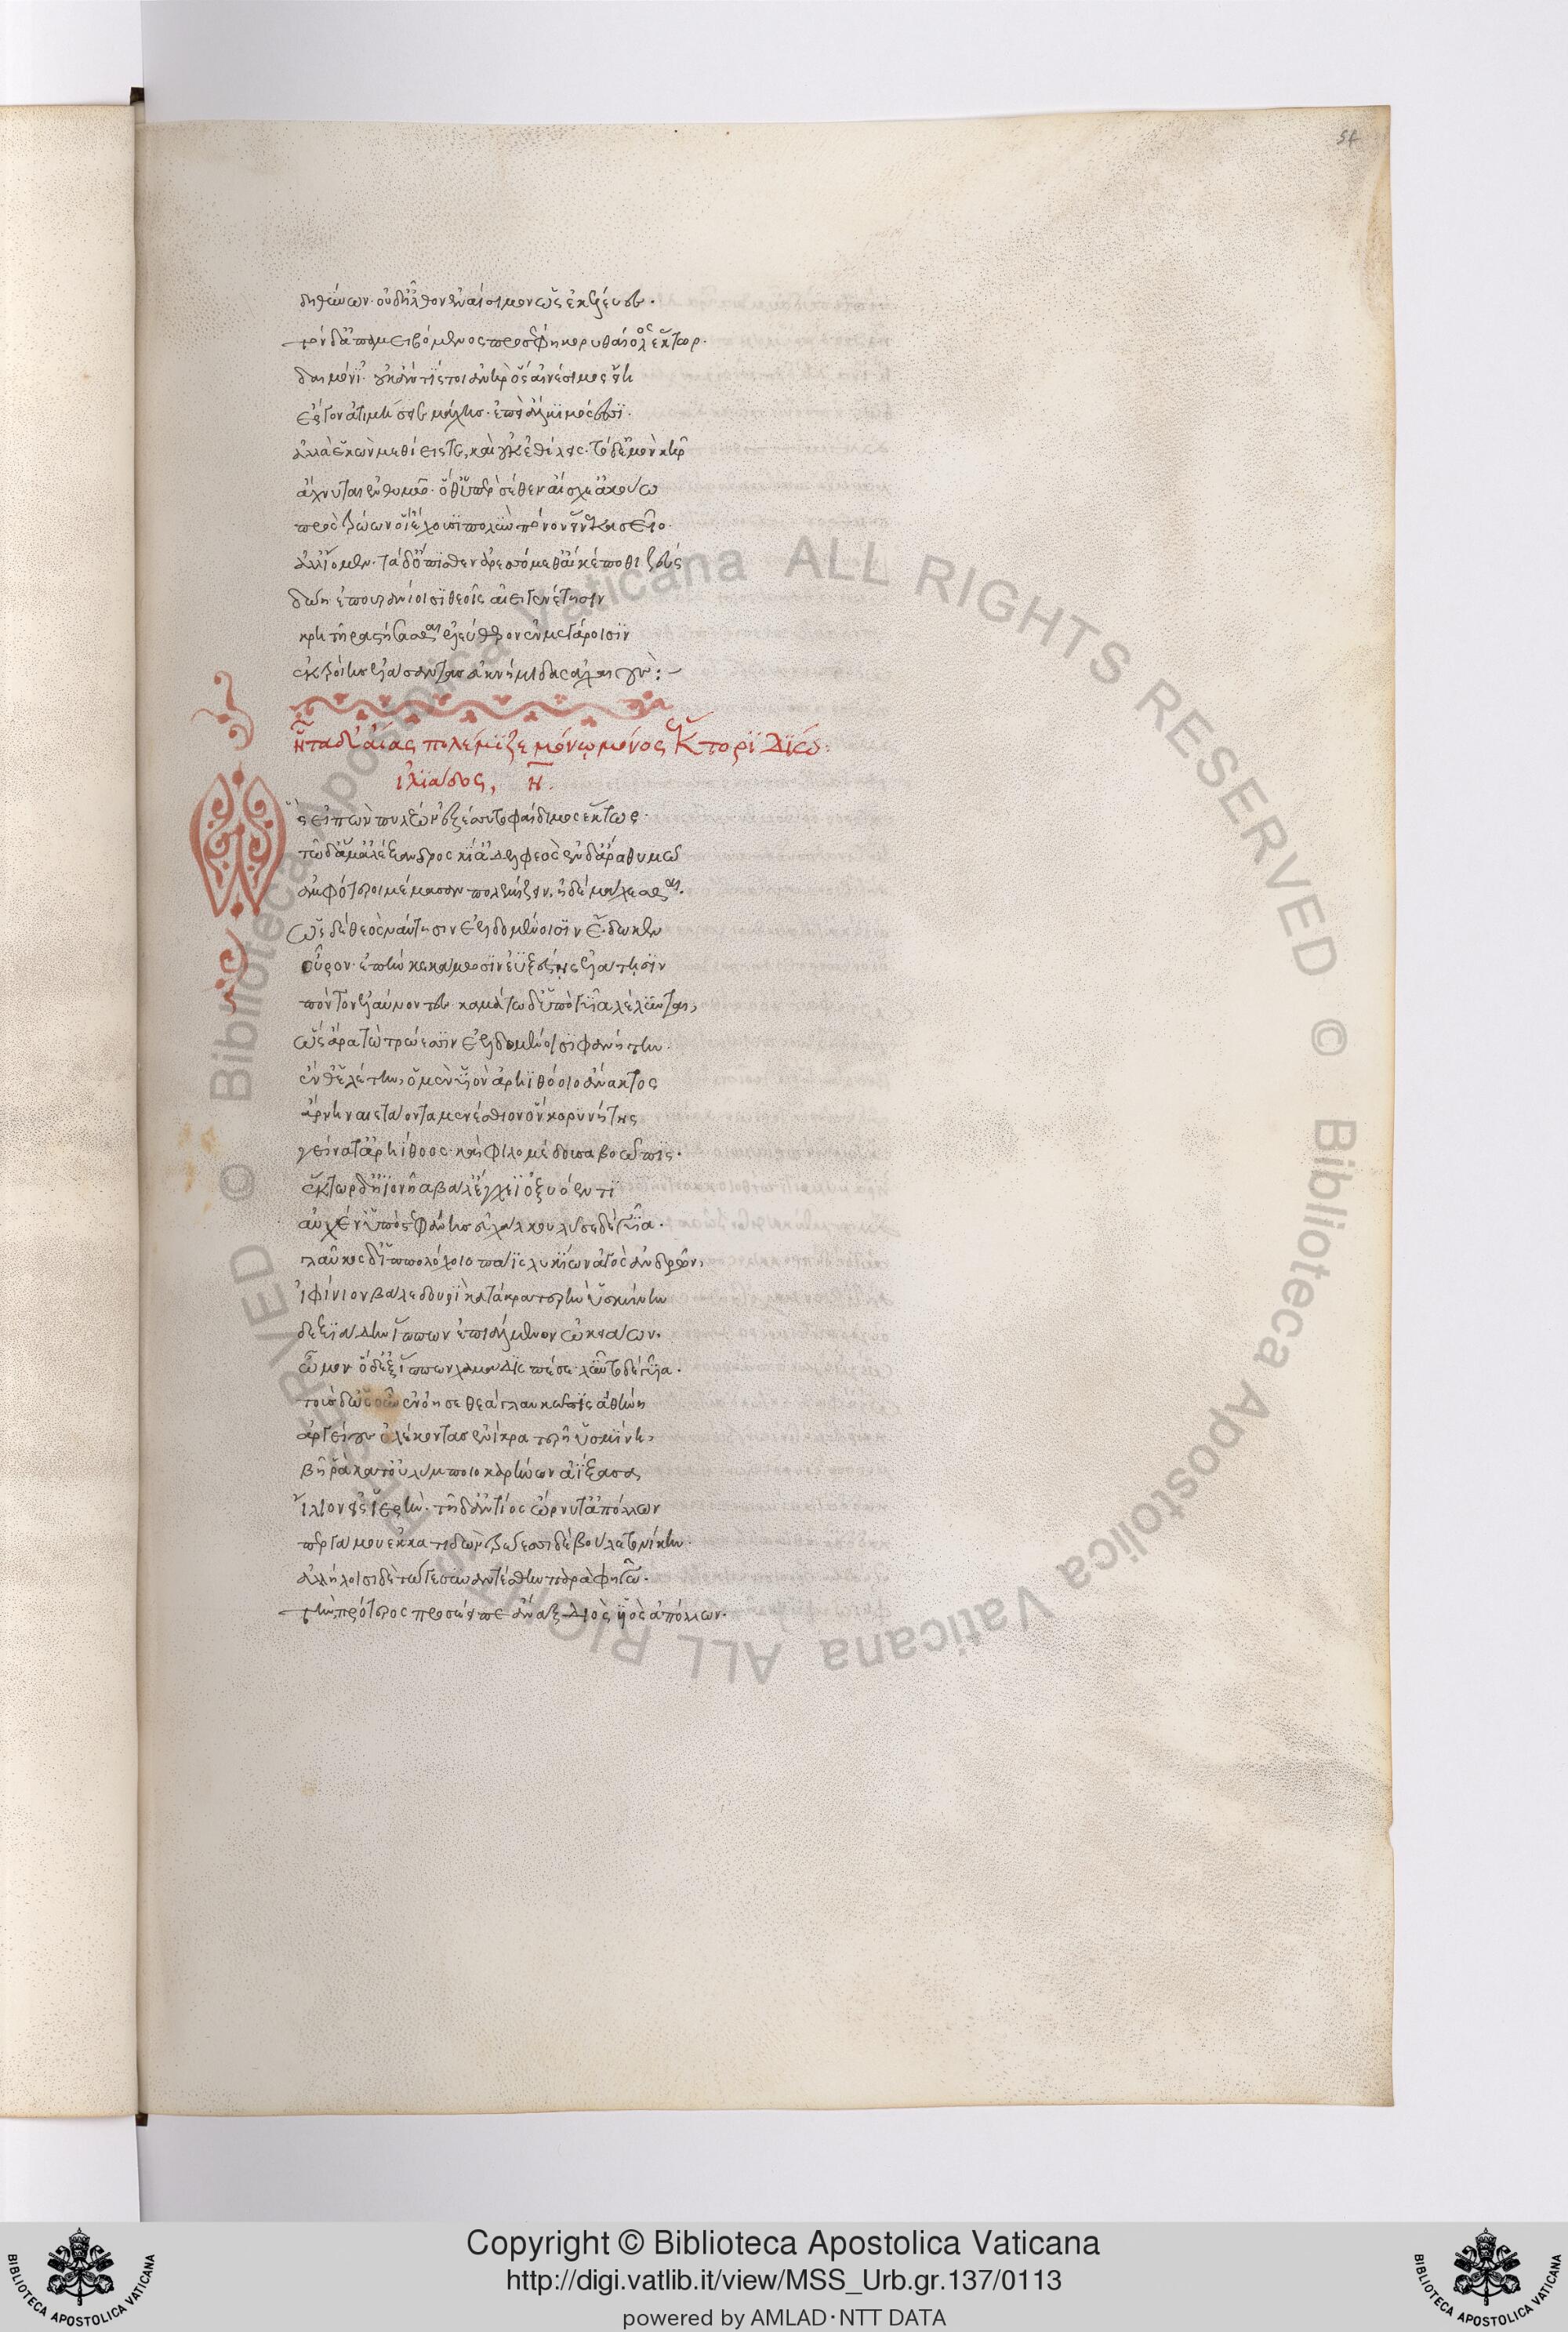 54
δηθύνων· οὐδ' ἦλθον ἐναίσιμον ὡς ἐκέλευες.
τὸν δ' ἀπαμειβόμενος προσέφη κορυθαίολος ἕκτωρ.
δαιμόνι'· οὐκ ἄν τίς τοι ἀνὴρ ὃς ἐναίσιμος εἴη
ἔργον ἀτιμήσειε μάχης· ἐπεὶ ἄλκιμός ἐσσι.
ἀλλὰ ἑκὼν μεθίεις τε, καὶ οὐκ ἐθέλεις· τὸ δ' ἐμὸν κῆρ
ἄχνυται ἐν θυμῶ· ὅθ' ὑπὲρ σέθεν αἴσχε' ἀκούω
πρὸς τρώων οἳ ἔχουσι πολὺν πόνον εἵνεκα σεῖο.
ἀλλ' ἴομεν· τὰ δ' ὄπισθεν ἀρεσσόμεθ' αἴ κέ ποθι ζεύς
δώη ἐπουρανίοισι θεοῖς αἰειγενέτησιν
κρητῆρα στήσασθαι ἐλεύθερον ἐν μεγάροισιν
ἐκ τροίης ἐλάσαντας ἐϋκνήμιδας ἀχαιούς:
ἦτα δ' αἴας πολέμιζε μόνω μόνος ἕκτορι δίω:
ἰλιάδος, η.
Ὣς εἰπὼν πυλέων ἐξέσσυτο φαίδιμος ἕκτωρ·
τῶ δ' ἅμ' ἀλέξανδρος κί' ἀδελφεὸς ἐν δ' ἄρα θυμῶ
ἀμφότεροι μέμασαν πολεμίζειν, ἠδὲ μάχεσθαι.
ὡς δὲ θεὸς ναύτησιν ἐελδομένοισιν ἔδωκεν
οὖρον· ἐπὴν κεκάμωσιν ἐϋξέστης ἐλάτησιν
πόντον ἐλαύνοντες· καμάτω δ' ὑπὸ γυῖα λέλυνται,
ὣς ἄρα τὼ τρώεσσιν ἐελδομένοισι φανήτην.
ἔνθ' ἑλέτην, ὁ μὲν υἱὸν ἀρηϊθόοιο ἄνακτος
ἄρνη ναιετάοντα μενέσθιον ὃν κορυνήτης
γείνατ' ἀρηίθοος· καὶ φιλομέδουσα βοῶπις.
ἕκτωρ δ' ἠϊονῆα βάλ' ἔγχεϊ ὀξυόεντι
αὐχέν' ὑπὸ στεφάνης εὐχάλκου λῦσε δὲ γυῖα.
γλαῦκος δ' ἱππολόχοιο πάϊς λυκίων ἀγὸς ἀνδρῶν,
ἰφίνοον βάλε δουρὶ κατὰ κρατερὴν ὑσμίνην
δεξιάδην ἵππων ἐπιάλμενον ὠκειάων.
ὦμον· ὁ δ' ἐξ ἵππων χαμάδις πέσε· λῦντο δὲ γυῖα.
τοὺς δ' ὡς οὖν ἐνόησε θεὰ γλαυκῶπις ἀθήνη
ἀργείους ὀλέκοντας ἐνὶ κρατερῆ ὑσμίνη,
βῆ ῥὰ κατ' οὐλύμποιο καρήνων ἀΐξασα
ἴλιον εἰς ἱερήν· τῆ δ' ἀντίος ὤρνυτ' ἀπόλλων
περγάμου ἐκκατιδών· τρώεσσι δὲ βούλετο νίκην.
ἀλλήλοισι δὲ τώ γε συναντέσθην παρὰ φηγῶ.
τὴν πρότερος προσέειπε ἄναξ διὸς υἱὸς ἀπόλλων.
Copyright © Biblioteca Apostolica Vaticana
http://digi.vatlib.it/view/MSS_Urb.gr.137/0113
powered by AMLAD·NTT DATA